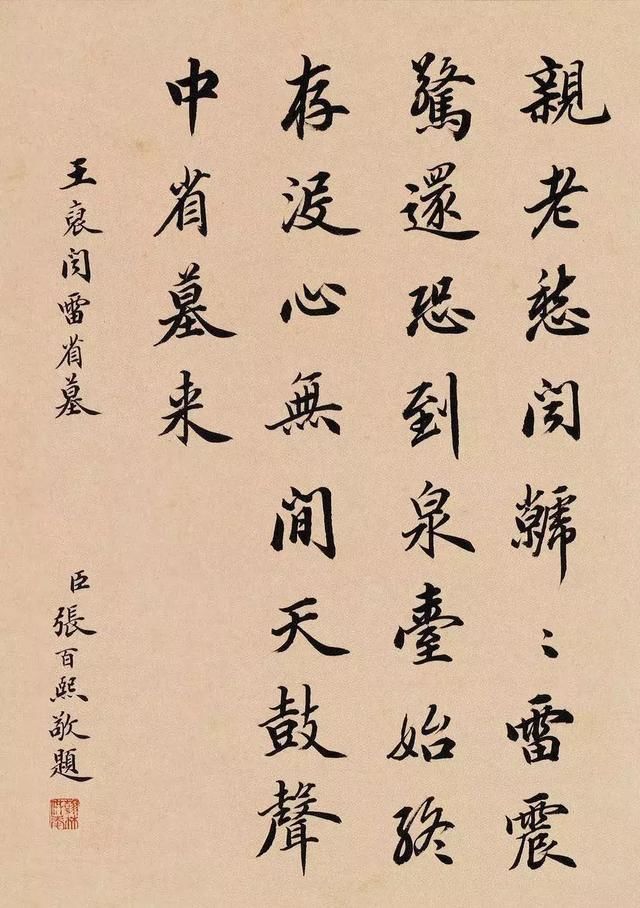 親老愁聞虩〻雷震
驚還恐到泉臺始終
存沒心無間天鼓聲
中省墓来
王裒聞雷省墓
臣張百熙敬題